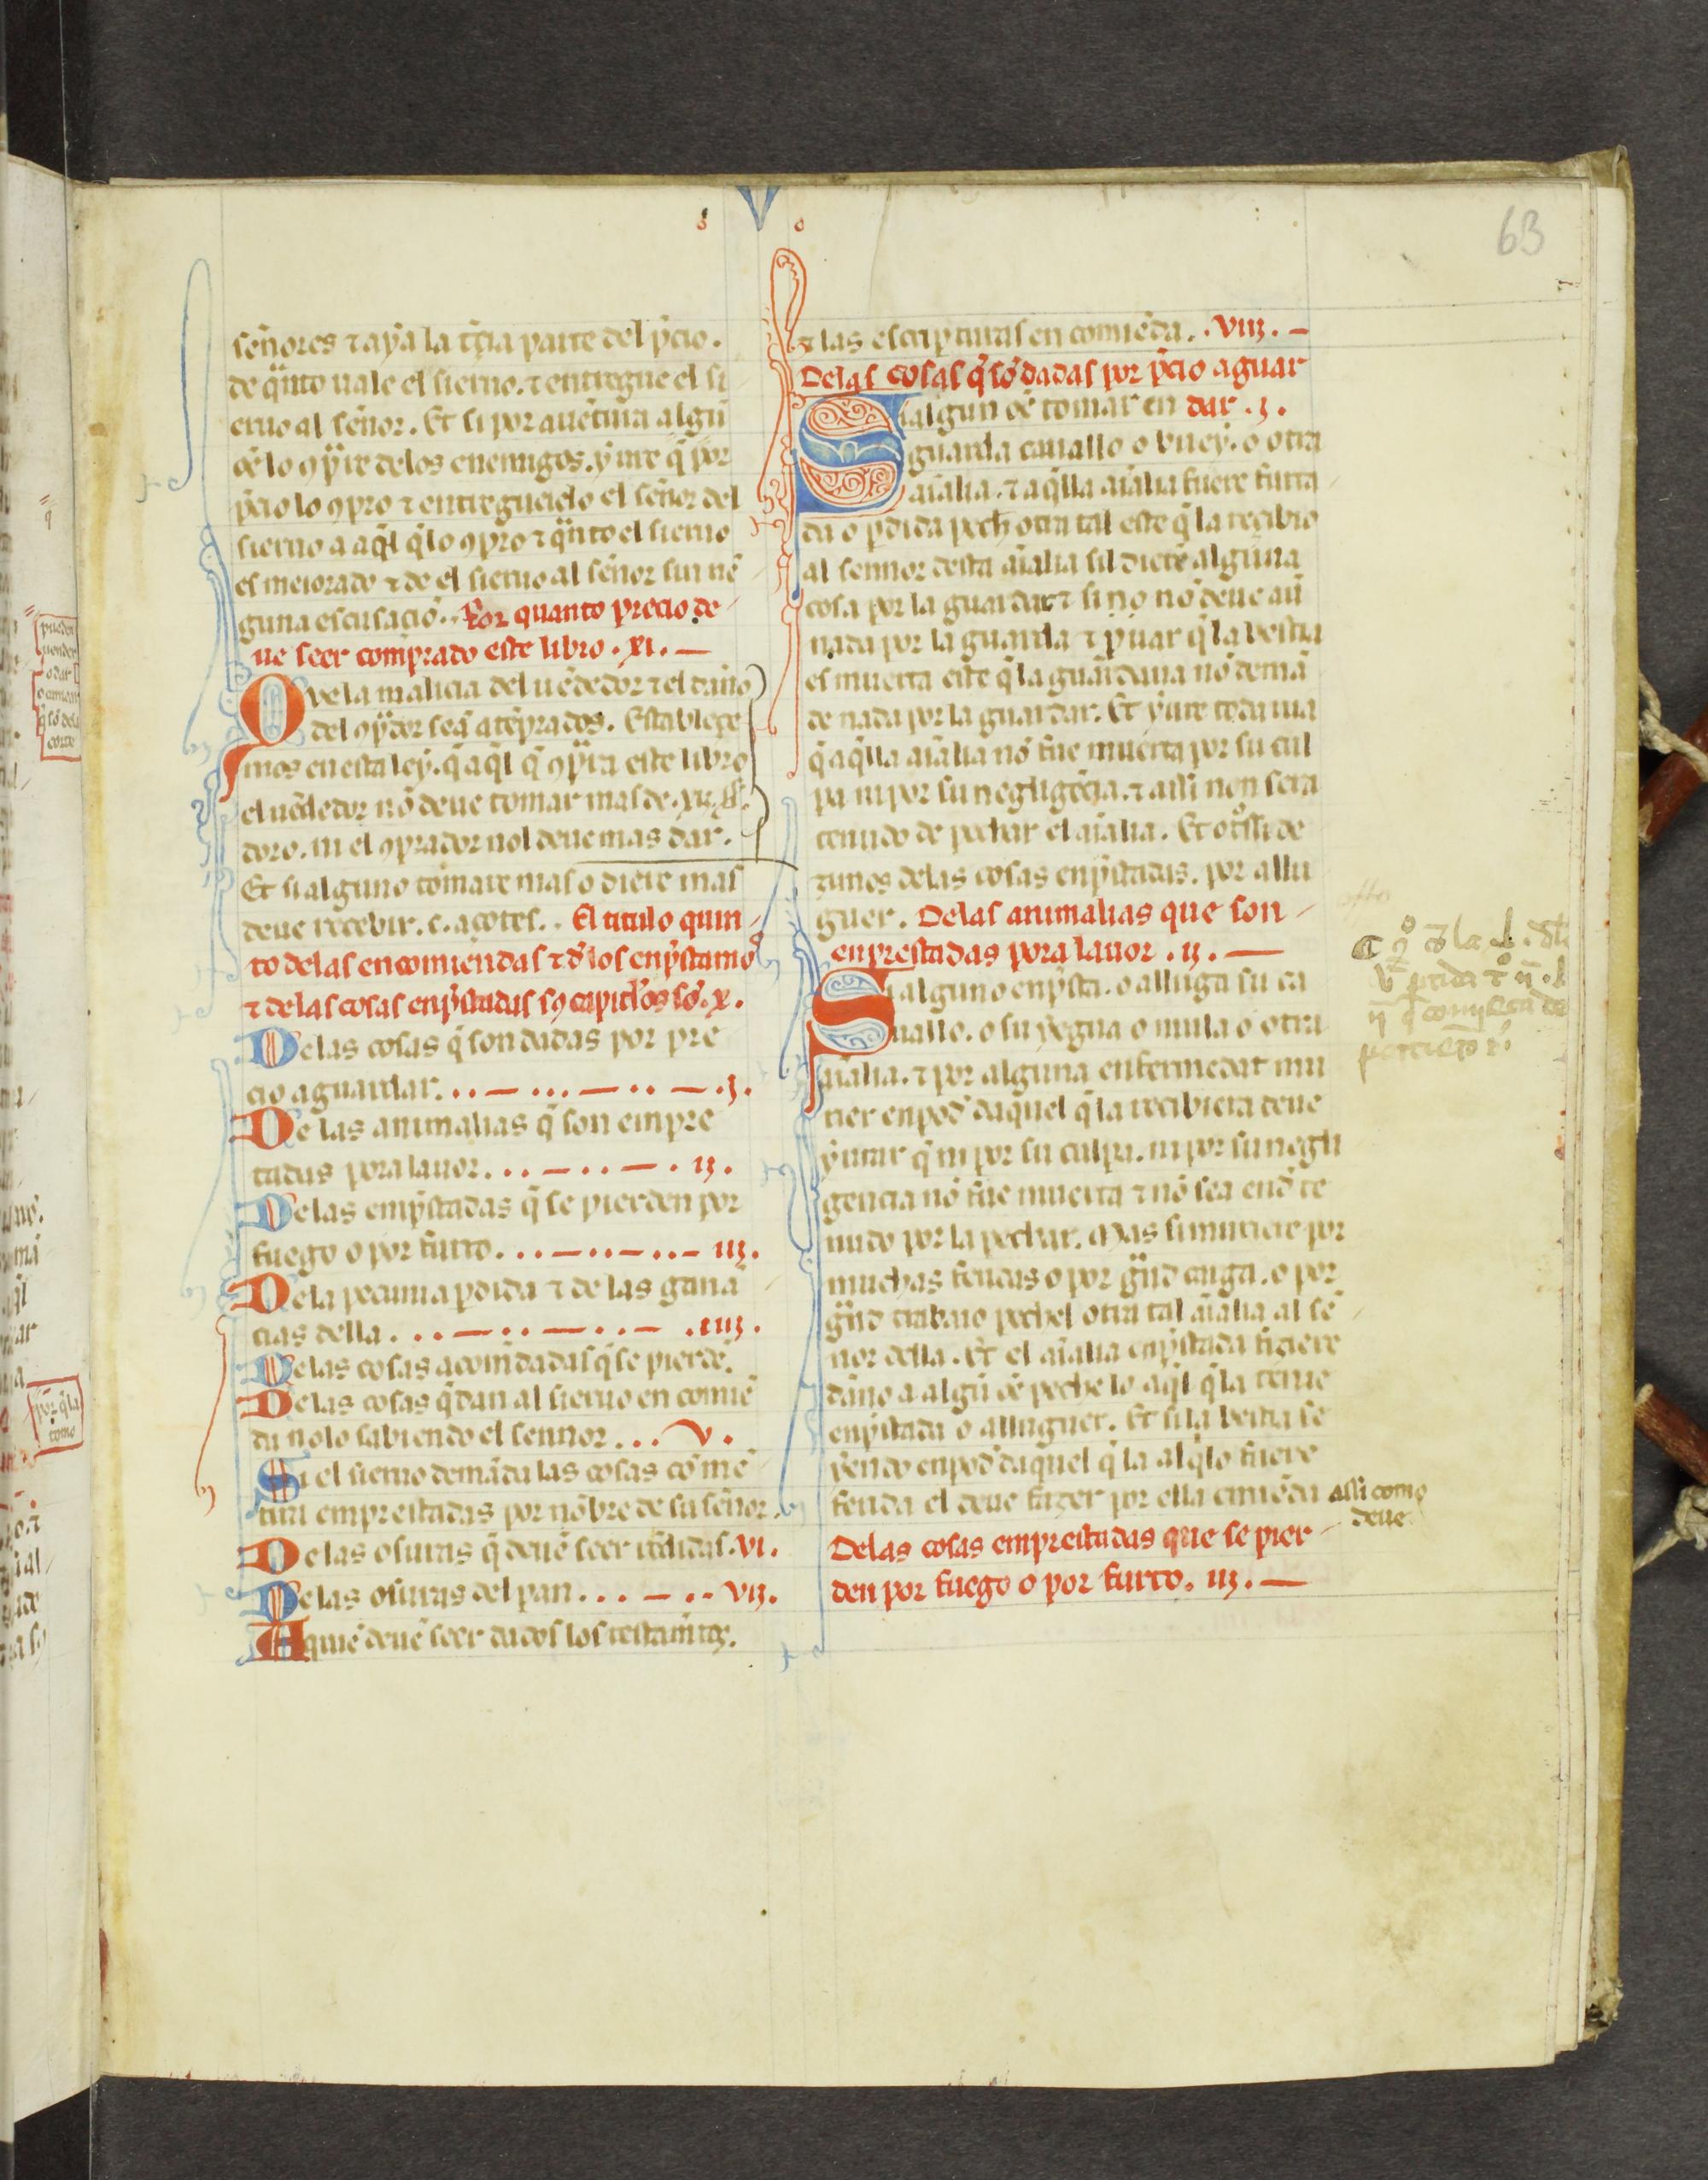 V
63
señores ⁊ aya la t̃cia parte del p̃cio.
de q̃nto uale el sieruo. ⁊ entregue el si
eruo al señor. Et si por auẽtura algũ
oẽ lo ꝯp̃re delos enemigos. yure q̃ por
p̃cio lo ꝯpro ⁊ entreguelo el señor del
sieruo a aq̃l q̃ lo ꝯpro ⁊ q̃nto el sieruo
es meiorado ⁊ de el sieruo al señor sin nẽ
guna escusaciõ. Por quanto precio de
ue seer comprado este libro. xi.
Que la malicia del uẽdedor ⁊ el daño
del ꝯp̃dor seã atẽprados. Estableçe
mos en esta ley. q̃ aq̃l q̃ ꝯp̃ra este libro
el uẽdedor nõ deue tomar mas de. xii. ss.
doro. ni el ꝯprador nol deue mas dar.
Et si alguno tomare mas o diere mas
deue recebir. c. açotes. El titulo quin
to delas encomiendas ⁊ dlos enp̃stamos
⁊ delas cosas enp̃stadas sꝯ capitl'os sõ. x.
De las cosas q̃ son dadas por pre
cio aguardar. . . i.
De las animalias q̃ son empre
tadas pora lauor. . . ii.
De las emp̃stadas q̃ se pierden por
fuego o por furto. . . iii.
De la pecunia p̃dida ⁊ de las ganã
cias della. . . iiii.
De las cosas acomẽdadas q̃ se pierdẽ.
De las cosas q̃ dan al sieruo en comiẽ
da nolo sabiendo el sennor. . . v.
Si el sieruo demãda las cosas comẽ
emprestadas por nõbre de su señor.
De las osuras q̃ deuẽ seer rẽdidas. vi.
De las osuras del pan. . . vii.
A quiẽ deuẽ seer dados los testamẽtos.
⁊ las escripturas en comiẽda. viii.
Delas cosas q̃ sõ dadas por p̃cio aguar
dar . i.
Si algun oẽ tomar en
guarda cauallo o buey. o otra
aĩalia. ⁊ aq̃lla aĩalia fuere furta
da o p̃dida pech otra tal este q̃ la recibio
al sennor desta aĩalia sil diere alguna
cosa por la guardar ⁊ si no nõ deue auer
nada por la guarda ⁊ p̃uar q̃ la bestia
es muerta este q̃ la guardaua nõ demã
de nada por la guardar. Et yure toda uia
q̃ aq̃lla aĩalia nõ fue muerta por su cul
pa ni por su negligẽcia. ⁊ assi non sera
tenudo de pechar el aĩalia. Et otrossi de
zimos delas cosas enp̃stadas. por allu
guer. Delas animalias que son
enprestadas pora lauor. ii.
Si alguno enp̃sta. o alluga su ca
uallo. o su yegua o mula o otra
aĩalia. ⁊ por alguna enfermedat mu
rier en pod̃ daquel q̃ la recibiera deue
yurar q̃ ni por su culpa. ni por su negli
gencia nõ fue muerta ⁊ nõ sea end̃ te
nudo por la pechar. Mas si muriere por
muchas feridas o por grãd carga. o por
grãd trabaio pechel otra tal aĩalia al se
ñor della. Et el aĩalia enp̃stada ficiere
daño a algũ oẽ peche lo aq̃l q̃ la tenie
enp̃stada o alluguer. Et si la bestia se
yendo en pod̃ daquel q̃ la alq̃lo fuere
ferida el deue fazer por ella emiẽda assi como
deue
Delas cosas emprestadas que se pier
den por fuego o por furto. iii.